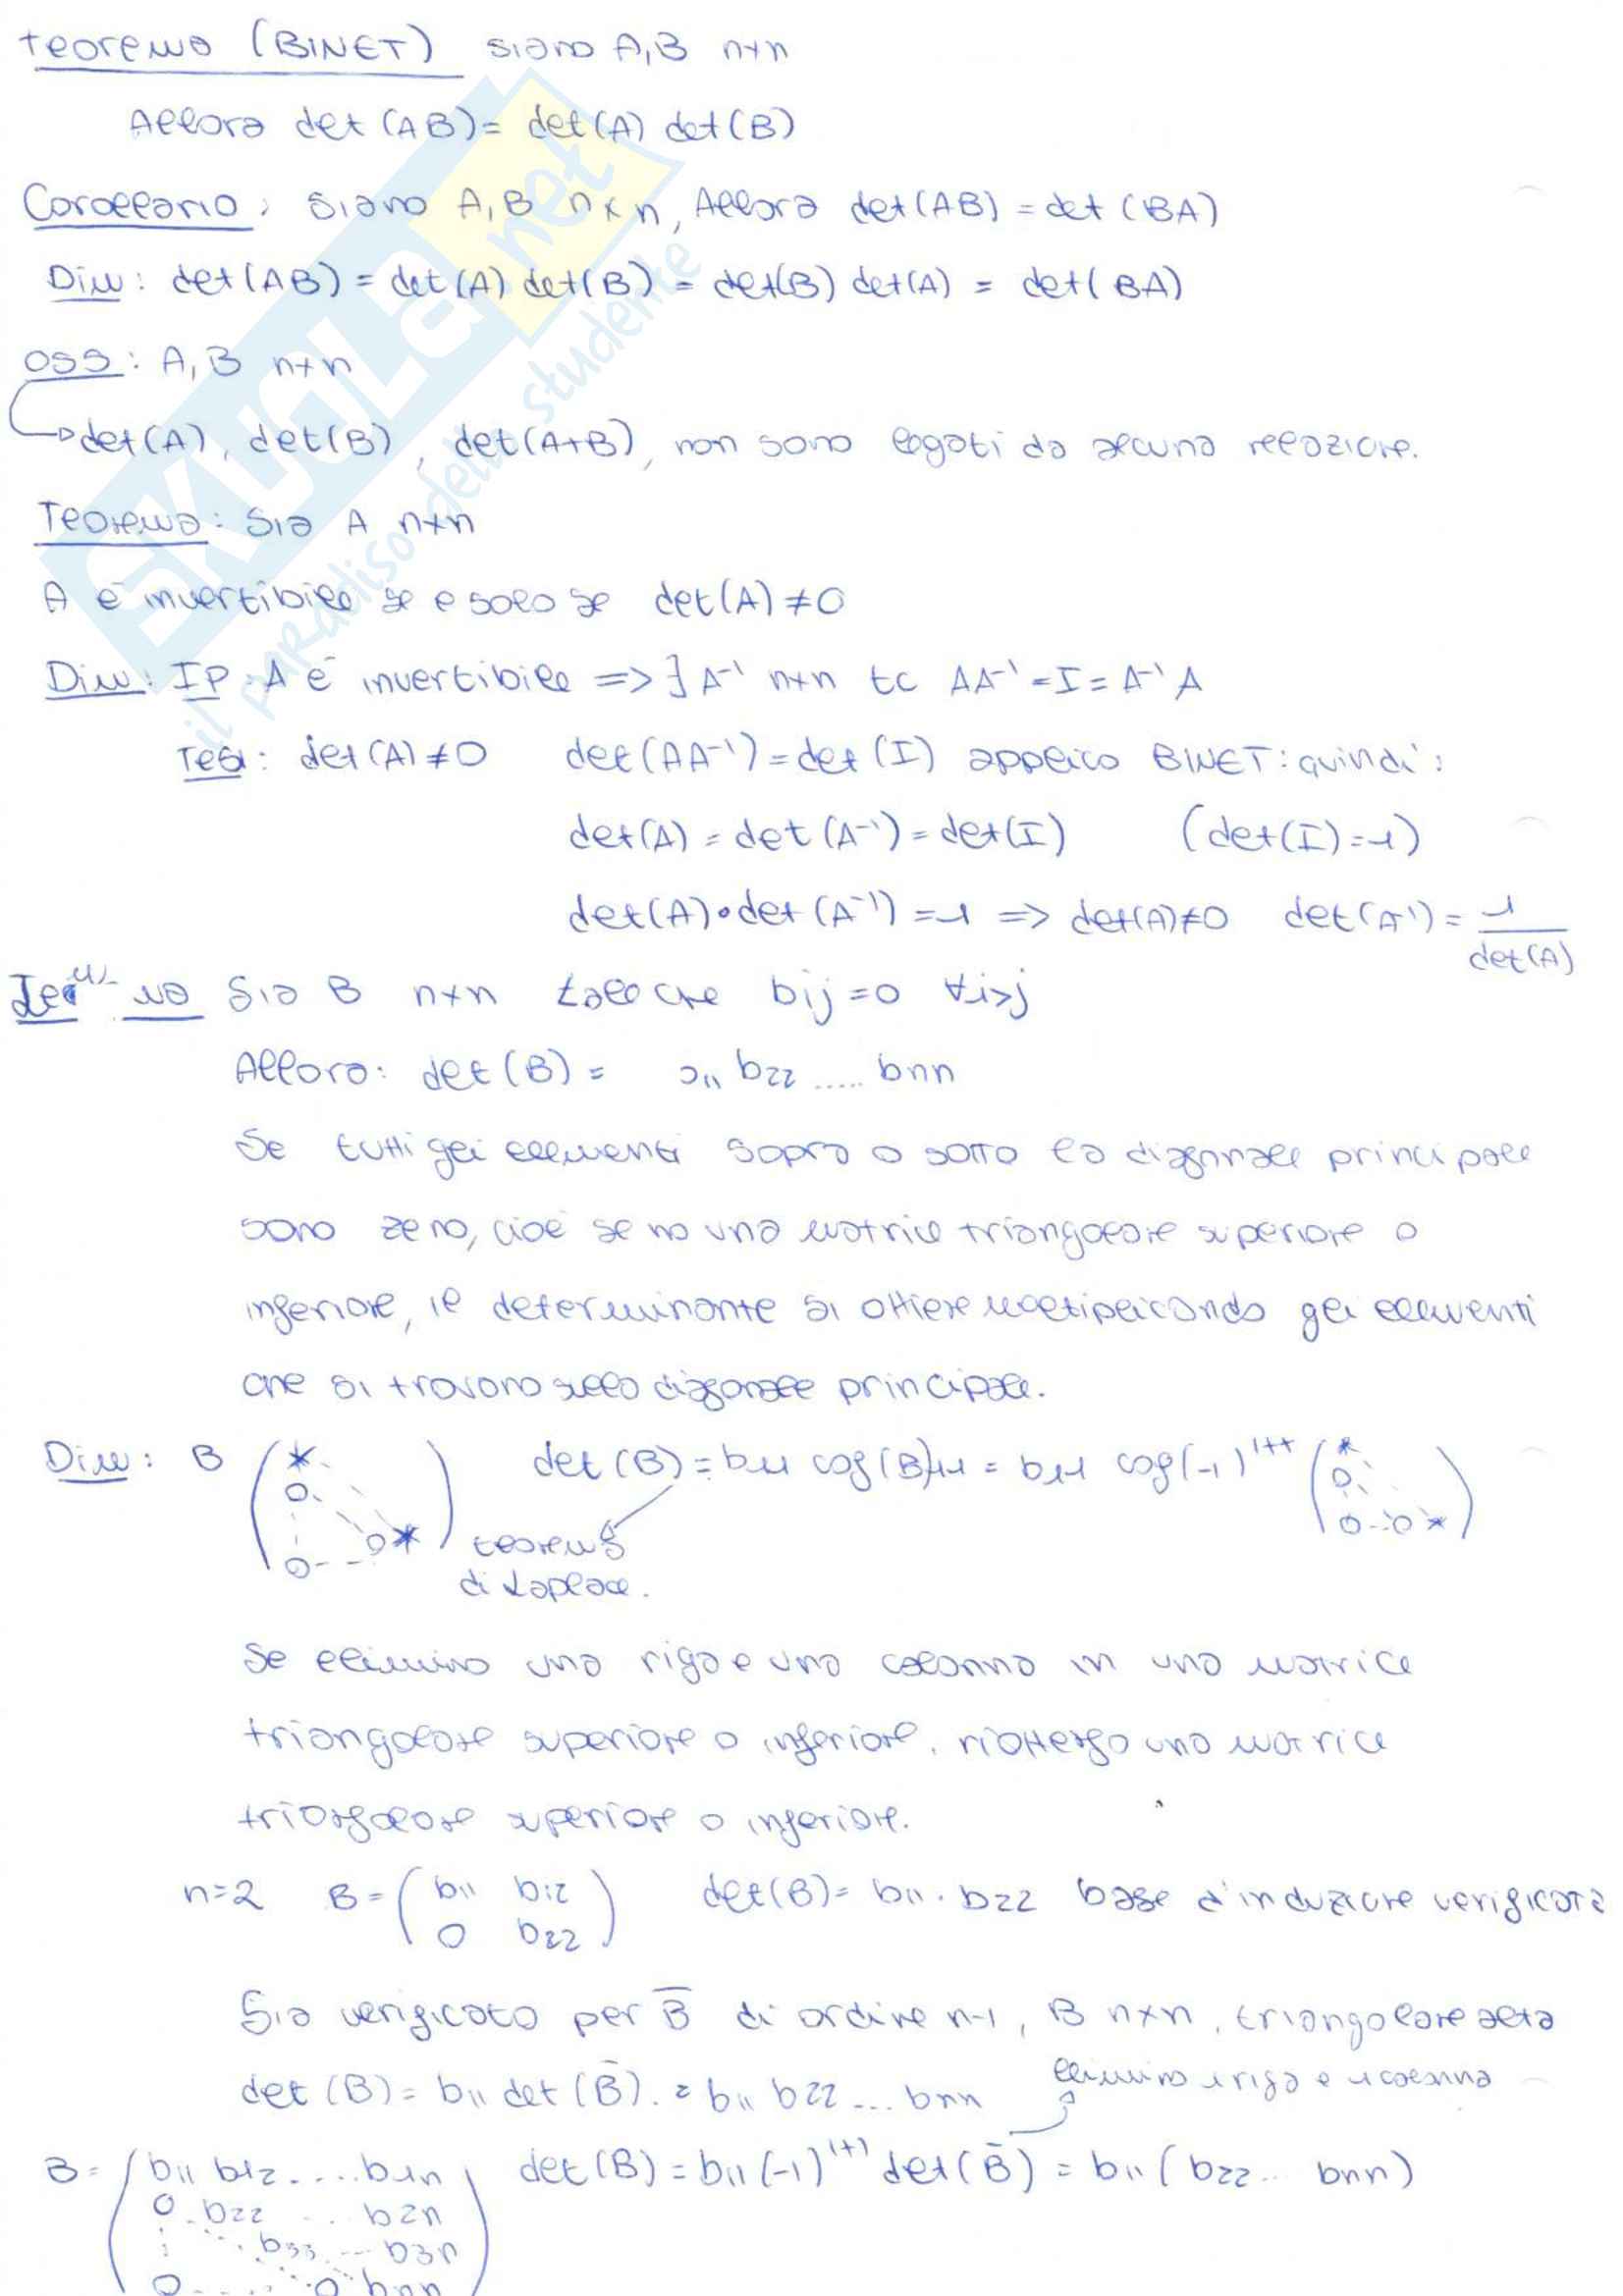 Teorema (BINET) siano A,B n×n
Allora det(AB) = det(A) det(B)
Corollario: siano A,B n×n, Allora det(AB) = det(BA)
Dim: det(AB) = det(A) det(B) = det(B) det(A) = det(BA)
OSS: A,B n×n
→ det(A), det(B), det(A+B), non sono legati da alcuna relazione.
Teorema: Sia A n×n
A è invertibile se e solo se det(A)≠0
Dim: IP: A è invertibile => ∃ A⁻¹ n×n tc AA⁻¹ = I = A⁻¹A
Tesi: det(A)≠0 det(AA⁻¹) = det(I) applico BINET: quindi:
det(A) = det(A⁻¹) = det(I) (det(I)=1)
det(A)•det(A⁻¹) = 1 => det(A)≠0 det(A⁻¹) = 1/det(A)
Lemma Sia B n×n tale che bij = 0 ∀i>j
Allora: det(B) = b₁₁ b₂₂ ..... bnn
Se tutti gli elementi sopra o sotto la diagonale principale
sono zero, cioè se ho una matrice triangolare superiore o
inferiore, il determinante si ottiene moltiplicando gli elementi
che si trovano sulla diagonale principale.
Dim: B ( * 0 0 0 * ) det(B) = b₁₁ cof(B)₁₁ = b₁₁ cof(-1)¹⁺¹ ( * 0 0 0 * )
teorema
di Laplace.
Se elimino una riga e una colonna in una matrice
triangolare superiore o inferiore, riottengo una matrice
triangolare superiore o inferiore.
n=2 B = ( b₁₁ b₁₂ 0 b₂₂ ) det(B) = b₁₁ · b₂₂ base d'induzione verificata
Sia verificato per B̄ di ordine n-1, B n×n, triangolare alta
elimino 1 riga e 1 colonna
det(B) = b₁₁ det(B̄). = b₁₁ b₂₂ ... bnn
B = ( b₁₁ b₁₂ .... b₁n det(B) = b₁₁ (-1)¹⁺¹ det(B̄) = b₁₁ (b₂₂ .. bnn)
0 b₂₂ ... b₂n
b₃₃ ... b₃n
0 ..... 0 bnn )
SKUOLA.net
il paradiso dello studente